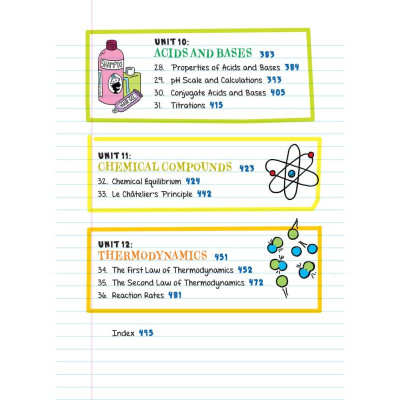 UNIT 10:
ACIDS AND BASES 383
28. Properties of Acids and Bases 384
29. pH Scale and Calculations 393
30. Conjugate Acids and Bases 405
31. Titrations 415
SHAMPOO
UNIT 11:
CHEMICAL COMPOUNDS 423
32. Chemical Equilibrium 424
33. Le Châtelier's Principle 442
UNIT 12:
THERMODYNAMICS 451
34. The First Law of Thermodynamics 452
35. The Second Law of Thermodynamics 472
36. Reaction Rates 481
Index 495